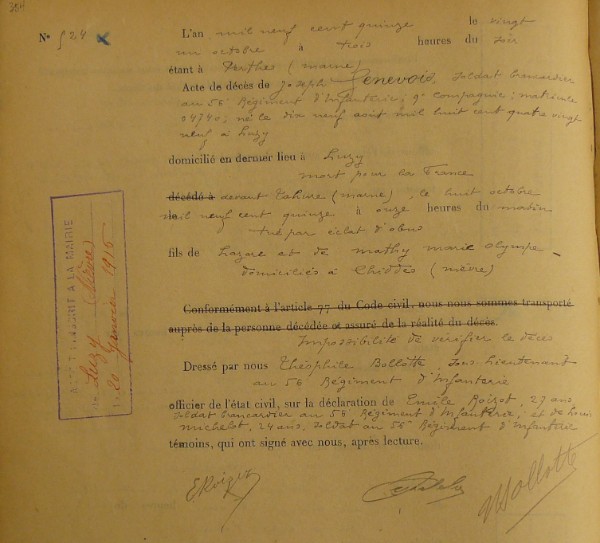 304
N° 524
L'an mil neuf cent quinze le vingt
un octobre à trois heures du soir
étant à Perthes (marne)
Acte de décès de Joseph Genevois, Soldat brancardier
au 56e Régiment d'Infanterie, 9e compagnie; matricule
04740; né le dix neuf août mil huit cent quatre vingt
neuf à Luzy
domicilié en dernier lieu à Luzy
mort pour la France
décédé à devant Tahure (marne), le huit octobre
le mil neuf cent quinze à onze heures du matin
tué par éclat d'obus
fils de Lazare et de mathy marie olympe
domiciliés à Chiddes (nièvre)
Conformément à l'article 77 du Code civil, nous nous sommes transporté
auprès de la personne décédée et assuré de la réalité du décès.
Impossibilité de vérifier le décès
Dressé par nous Théophile Bollotte, Sous lieutenant
au 56 Régiment d'Infanterie
officier de l'état civil, sur la déclaration de Emile Roizot, 27 ans
soldat brancardier au 56e Régiment d'Infanterie; et de Louis
michelot, 24 ans, soldat au 56e Régiment d'Infanterie
témoins, qui ont signé avec nous, après lecture.
ERoizot
Bollotte
ACTE TRANSCRIT A LA MAIRIE
de Luzy (Nièvre)
le 20 Janvier 1916